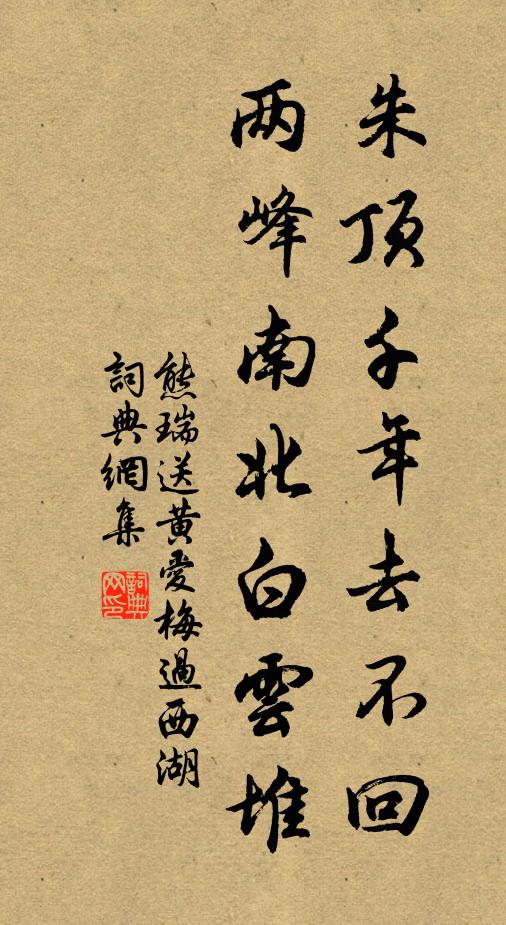 朱顶千年去不回
两峰南北白雲堆
熊瑞送黄愛梅過西湖
詞典網集
詞典网印